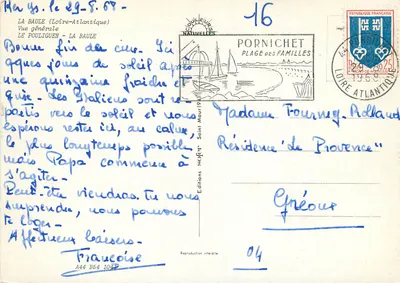 Ker Ys. le 29-8.68-
LA BAULE (Loire-Atlantique)
Vue générale
LE POULIGUEN - LA BAULE
Bonne fin de cure. Ici
qques jours de soleil après
une quinzaine fraîche et
grise. Les Italiens sont re-
partis vers le soleil et nous
espérons rester ici, au calme,
le plus longtemps possible
mais Papa commence à
s'agiter-
Peut-être viendras tu nous
surprendre, nous pouvons
te loger-
Affectueux baisers-
Françoise
16
NATURELLES
PORNICHET
PLAGE DES FAMILLES
REPUBLIQUE FRANÇAISE
LOIRE ATLANTIQUE
1968
Madame Fourney-Rolland
Résidence "de Provence"
Gréoux
04
Reproduction interdite